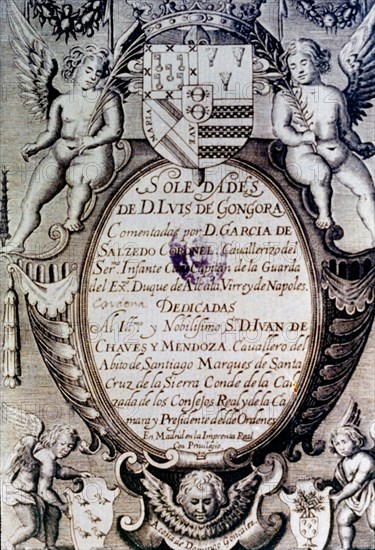 MARIA
AVE
SOLEDADES
DE D. LVIS DE GONGORA
Comentadas por D. GARCIA DE
SALZEDO CORONEL. Cauallerizo del
Serᵐᵒ Infante Card. Capitan de la Guarda
del Exᵐᵒ Duque de Alcala, Virrey de Napoles.
DEDICADAS
Al Illᵐᵒ y Nobilissimo S. D. IVAN DE
CHAVES Y MENDOZA. Cauallero del
Abito de Santiago Marques de Santa
Cruz de la Sierra Conde de la Cal
zada de los Consejos Real y de la Ca
mara y Presidente del de Ordenes.
En Madrid en la Imprenta Real
Con Priuilegio.
A costa de Domingo Gonzalez